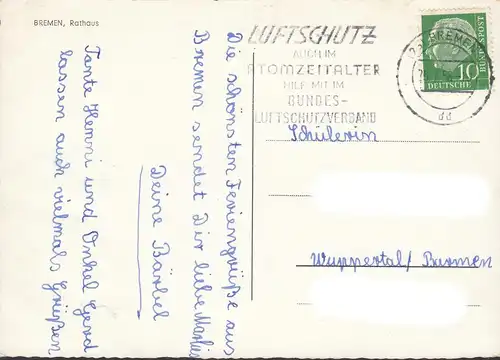 BREMEN, Rathaus
LUFTSCHUTZ
AUCH IM
ATOMZEITALTER
HILF MIT IM
BUNDES-
LUFTSCHUTZVERBAND
BREMEN
dd
10
DEUTSCHE
BUNDESPOST
Die schönsten Feriengrüße aus
Bremen sendet Dir liebe
Deine Bärbel
Tante Hemmi und Onkel Gerd
lassen auch vielmals Grüßen
Schülerin
Wuppertal/Barmen